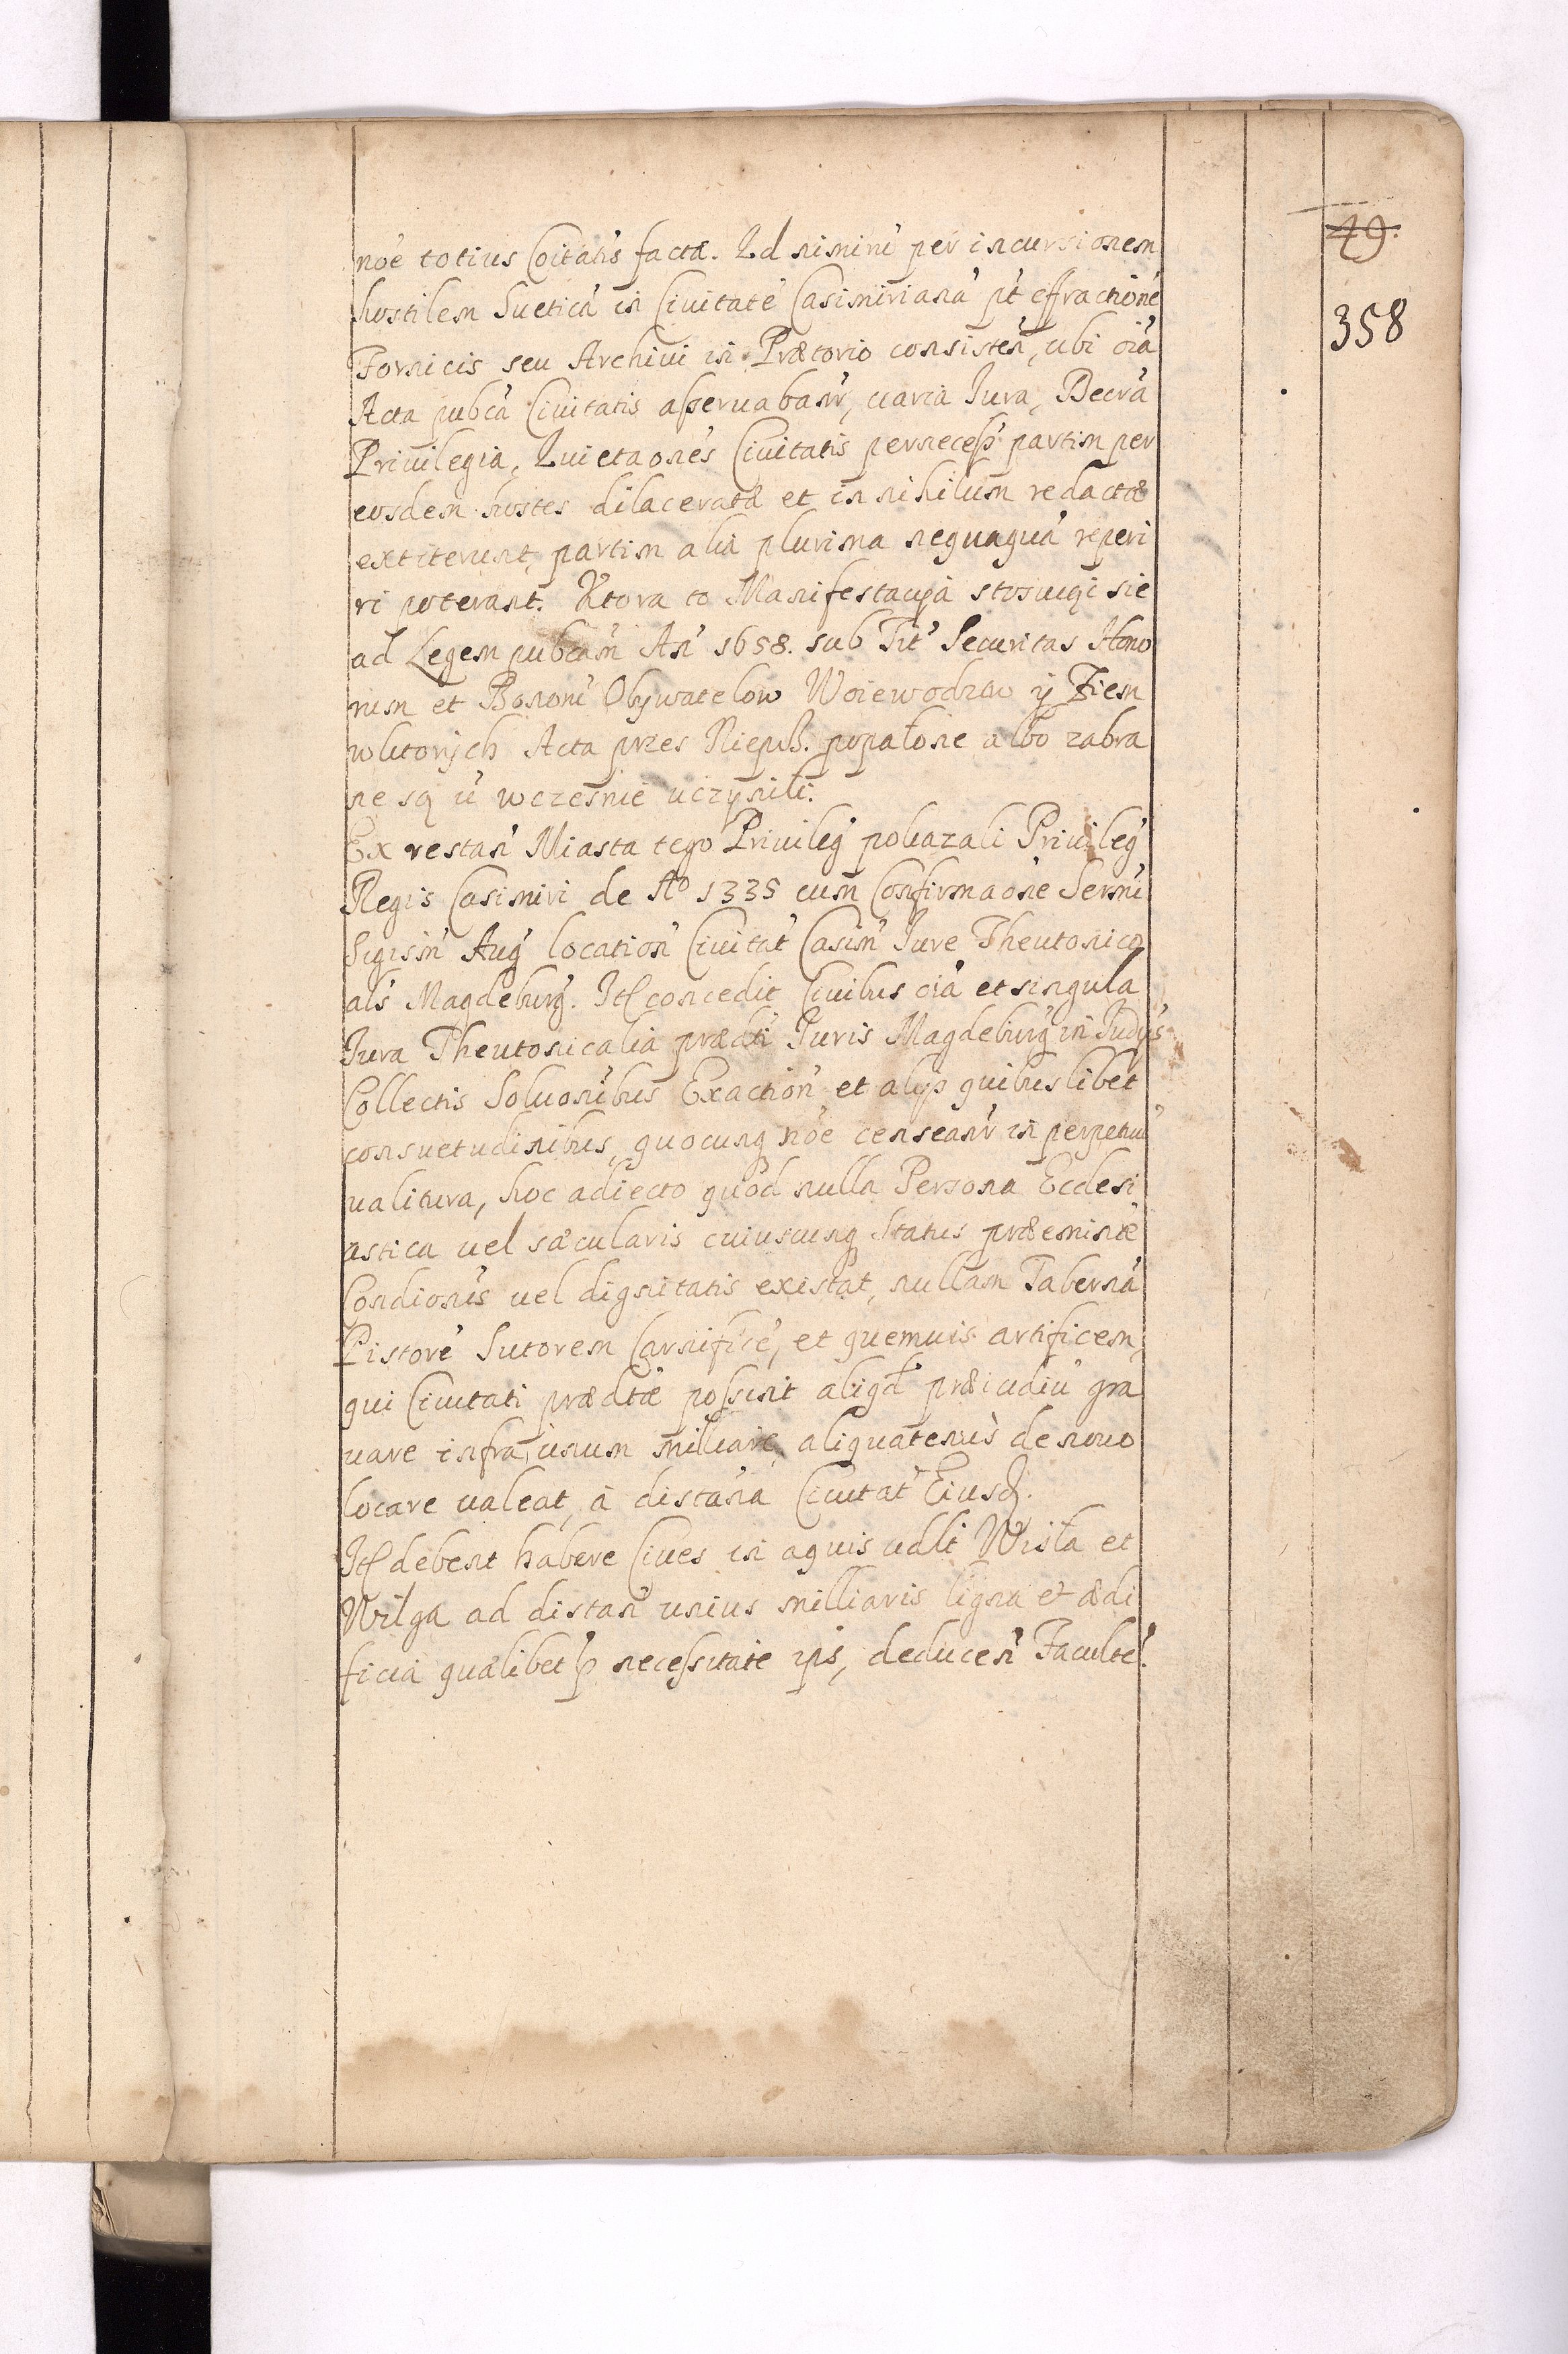 49.
358
noe totius Coitatis factæ. Qd nimirū per incursionem
hostilem Sueticā in Ciuitatē Casimirianā pt effractionē
Fornicis seu Archiui in Prætorio consisteñ, ubi oia
Acta pubca Ciuitatis asseruabanr, varia Iura, Decra
Priuilegia, Quietaones Ciuitatis pernecess partim per
eosdem hostes dilacerata et in nihilum redactæ
extiterunt, partim alia plurima nequaquā reperi
ri poterant. Ktora to Manifestacyą stosuiąc sie
ad Legem pubcam An 1658. sub Tit Securitas Hono
rum et Bonorū Obywatelow Woiewodztw ÿ Ziem
wktorych Acta przes Niepÿl. popalone albo zabra
ne są ū wczesnie uczynili.
Ex restan Miasta tego Priuileg pokazali Priuileg
Regis Casimiri de Aº 1335 cum Confirmaone Sermi
Sigism Aug location Ciuitat Casim Iure Theutonico
als Magdeburg. Itē concedit Ciuibus oia et singula
Iura Theutonicalia prædti Iuris Magdeburg in Iudÿs
Collectis Soluonibus Exaction et alys quibuslibet
consuetudinibus, quocunq noe censeanr in perpetuū
ualitura, hoc adiecto quod nulla Persona Ecclesi
astica uel sæcularis cuiuscunq Status præeminē
Condionis uel dignitatis existat, nullam Tabernā
Pistorē Sutorem Carnificē, et quemuis artificem,
qui Ciuitati prædtæ possint aliqd præiudiū gra
uare infra unum miliare aliquatenus de nouo
locare ualeat, a distana Ciuitat Eiusd.
Itē debent habere Ciues in aquis udlt Wisła et
Wilga ad distan unius milliaris ligna et ædi
ficia qualibet p necessitate ips, deducen Facultē.